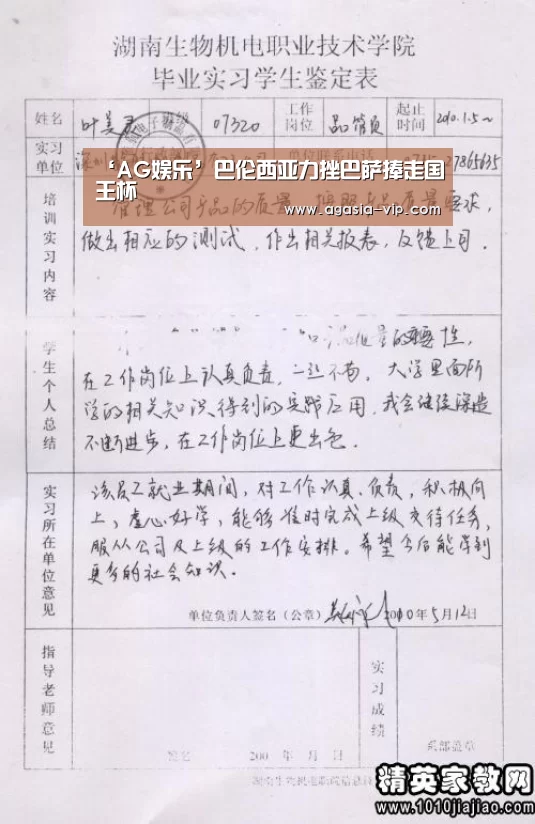 湖南生物机电职业技术学院
毕业实习学生鉴定表
姓名 叶美君 班级 07320 工作岗位 品管员 起止时间 2010.1.5~
实习单位 深圳
‘AG娱乐’巴伦西亚力挫巴萨捧走国王杯
www.agasia-vip.com
培训实习内容
管理公司产品的质量,按照产品质量要求,
做出相应的测试,作出相关报表,反馈上司.
学生个人总结
的重要性,
在工作岗位上认真负责,一丝不苟,大学里面所
学的相关知识得到的实践应用,我会继续深造
不断进步,在工作岗位上更出色.
实习所在单位意见
该员工就业期间,对工作认真、负责,积极向
上,虚心好学,能够准时完成上级交待任务,
服从公司及上级的工作安排。希望今后能学到
更多的社会知识.
单位负责人签名(公章) 2010年5月12日
指导老师意见
实习成绩
签名 200 年 月 日
系部盖章
精英家教网
www.1010jiajiao.com